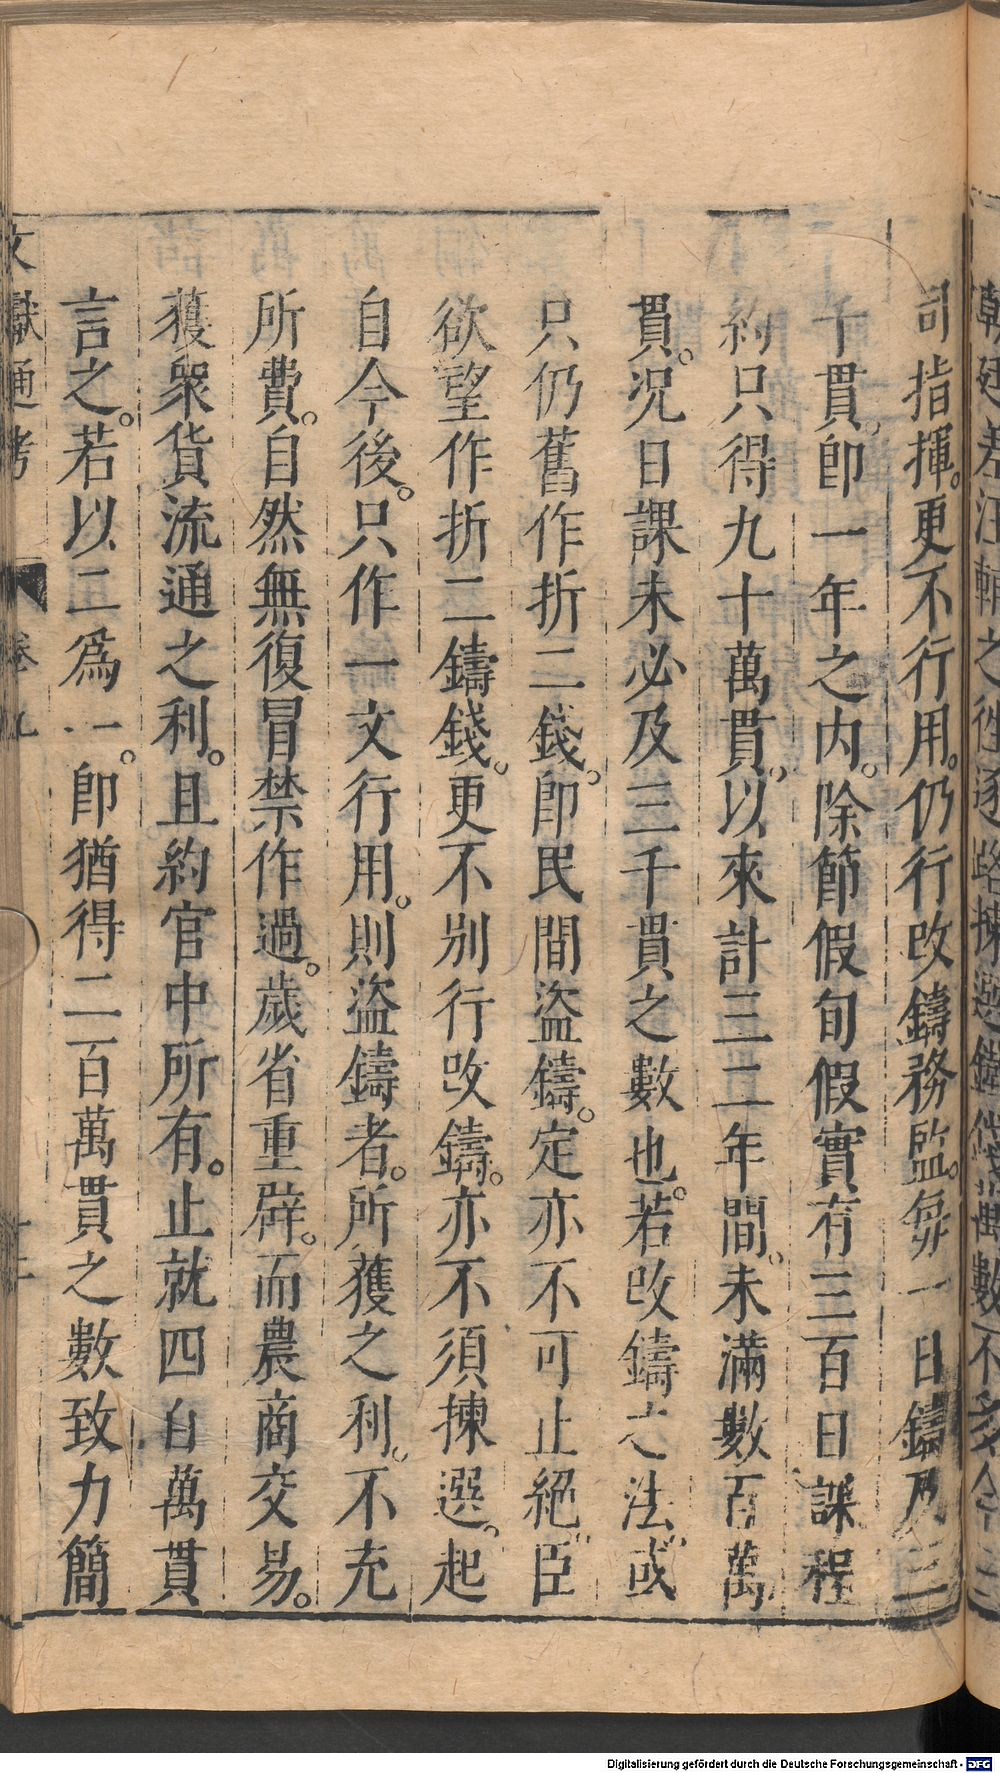 朝廷差注輔之往逐路揀選鑄錢數不多今
司指揮。更不行用。仍行改鑄務監。每一日鑄及三
千貫。卽一年之内。除節假旬假實有三百日課程
約只得九十萬貫。以來計三二年間。未滿數百萬
貫。況日課未必及三千貫之數也。若改鑄之法。或
只仍舊作折二錢。卽民間盜鑄。定亦不可止絕。臣
欲望作折二鑄錢。更不別行改鑄。亦不須揀選。起
自今後。只作一文行用。則盜鑄者。所獲之利。不充
所費。自然無復冒禁作過。歲省重辟。而農商交易。
獲衆貨流通之利。且約官中所有。止就四百萬貫
言之。若以二爲一。卽猶得二百萬貫之數致力簡
文獻通考 卷九 十二
Digitalisierung gefördert durch die Deutsche Forschungsgemeinschaft - DFG